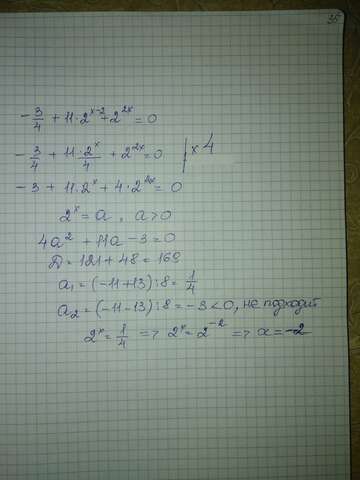 35
-3/4 + 11·2^(x-2) + 2^(2x) = 0
-3/4 + 11·2^x/4 + 2^(2x) = 0 | ×4
-3 + 11·2^x + 4·2^(2x) = 0
2^x = a, a > 0
4a² + 11a - 3 = 0
Д = 121 + 48 = 169
a₁ = (-11+13):8 = 1/4
a₂ = (-11-13):8 = -3 < 0, не подходит
2^x = 1/4 => 2^x = 2^(-2) => x = -2